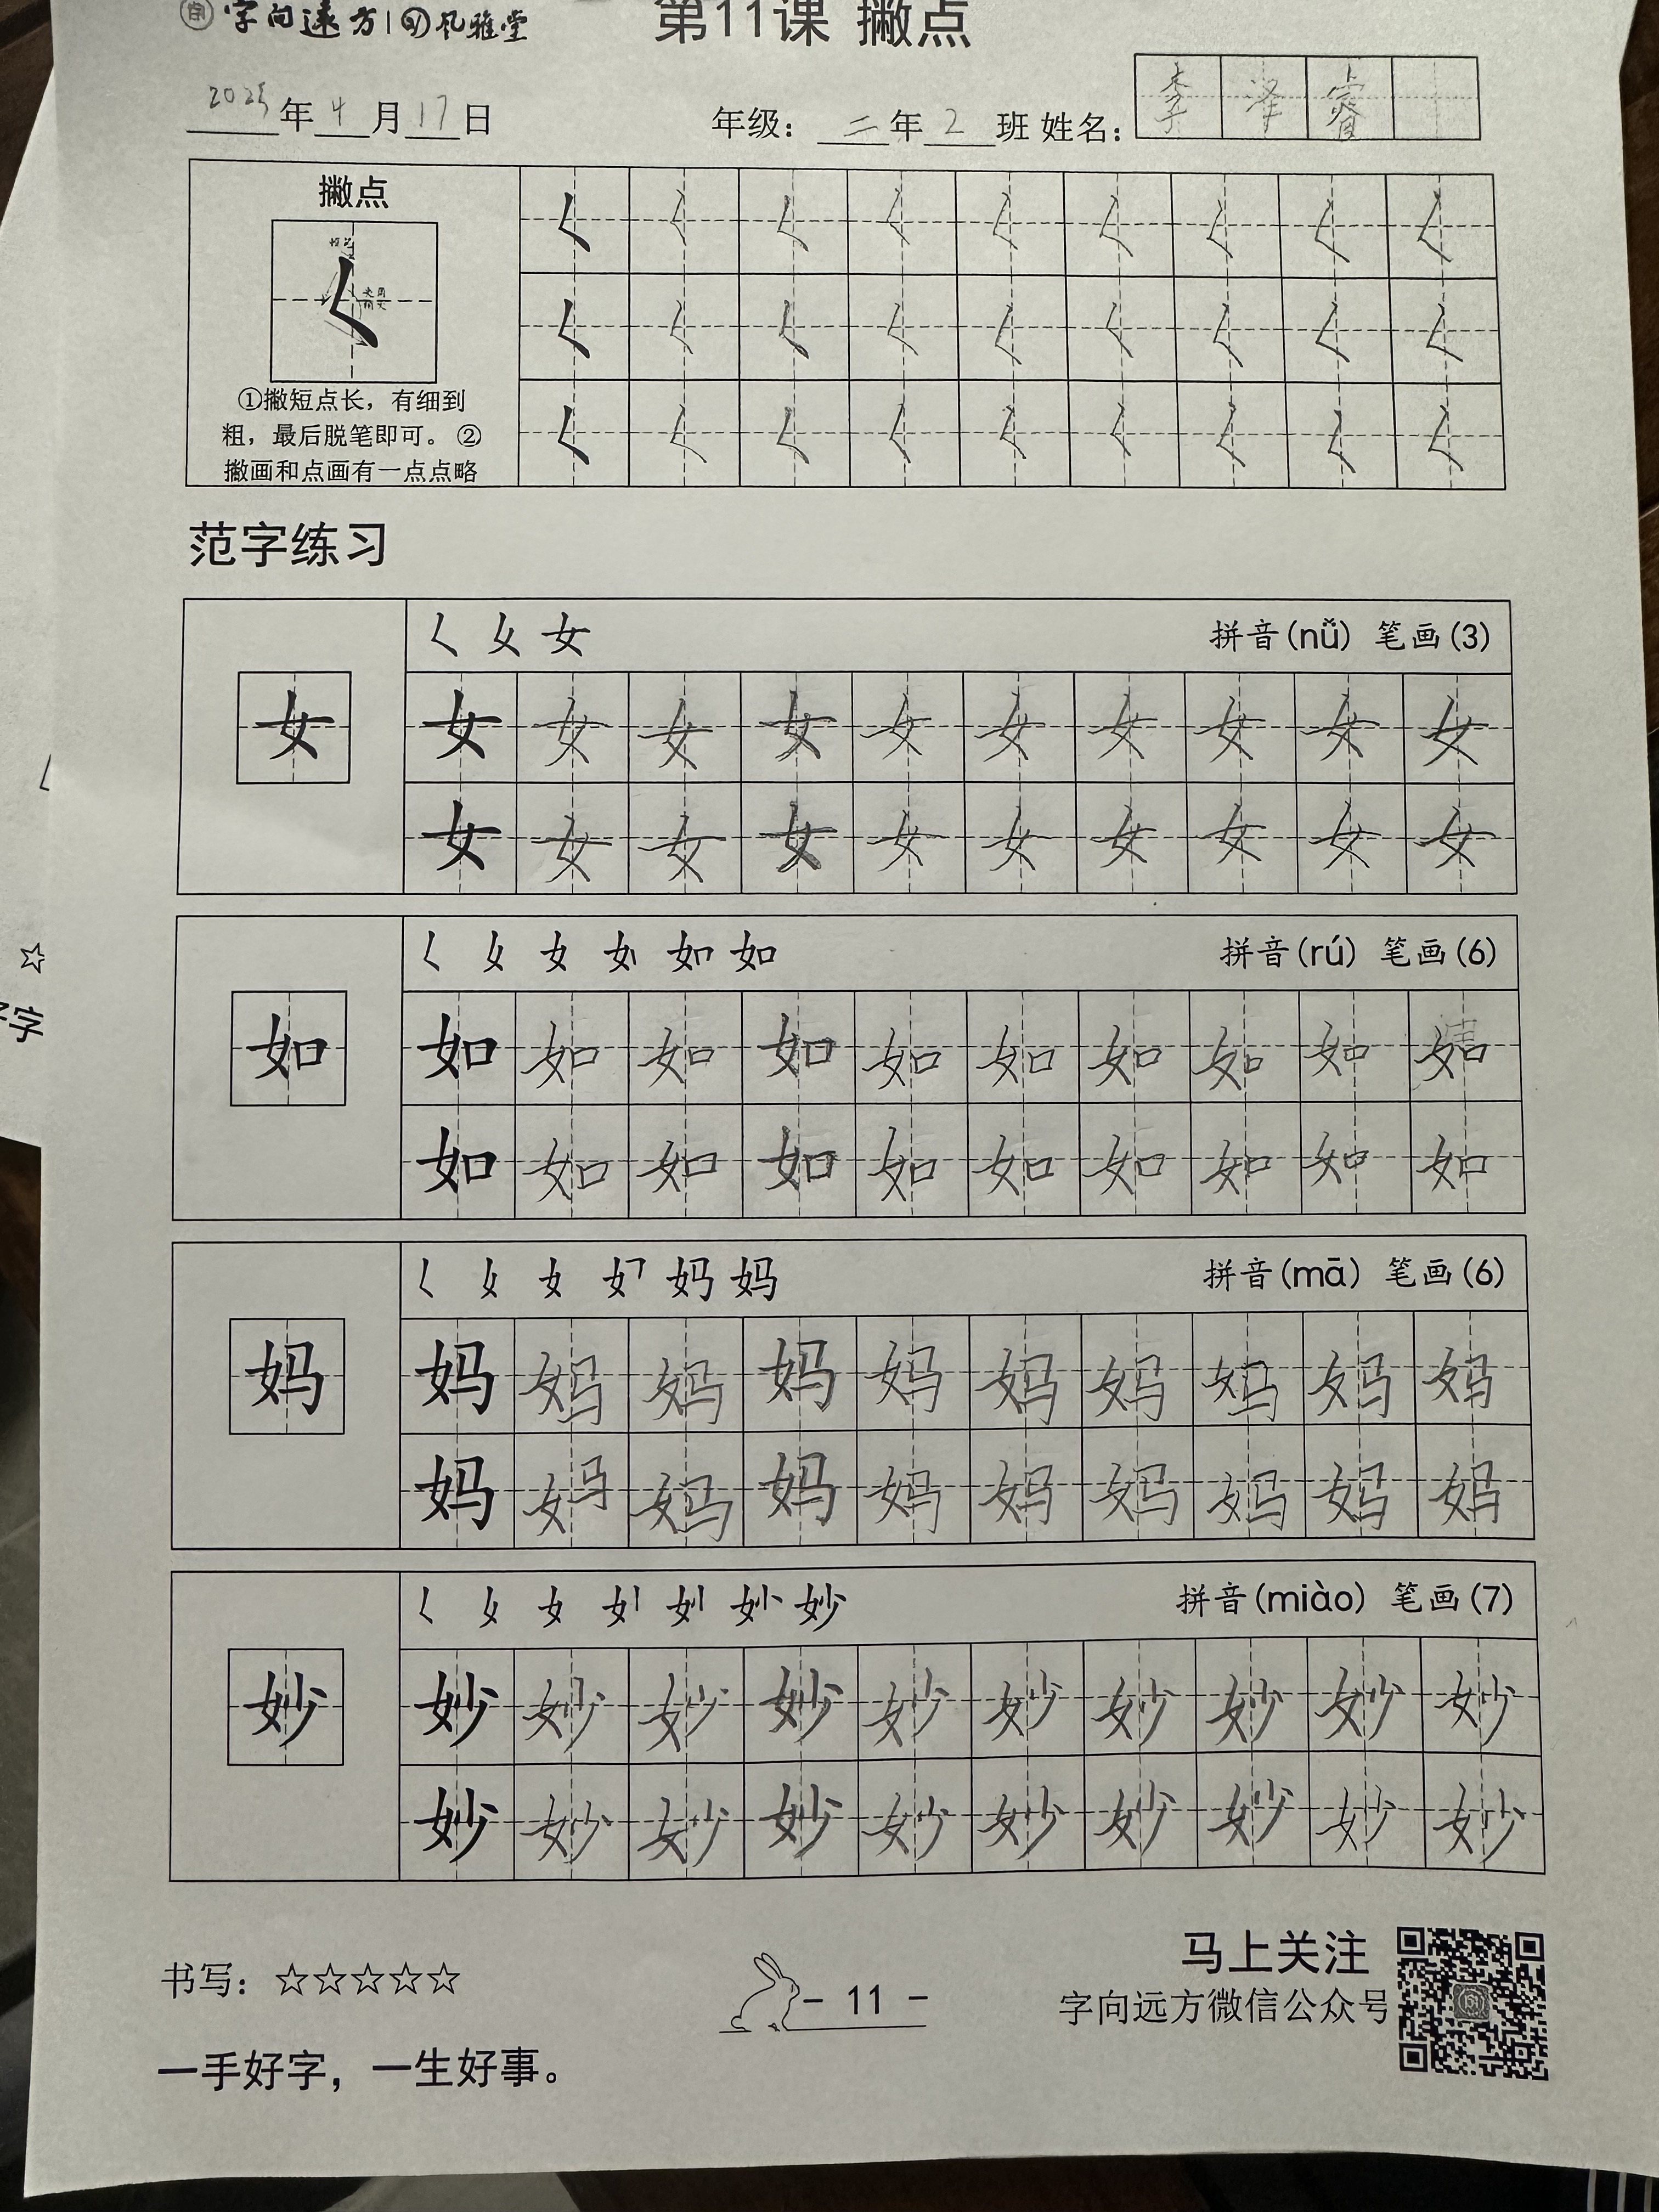 字向远方 | 风雅堂
第11课 撇点
2025年4月17日
年级：二年2班 姓名：李泽睿
撇点
①撇短点长，有细到
粗，最后脱笔即可。②
撇画和点画有一点点略
范字练习
女 拼音(nǚ) 笔画(3)
女 女 女 女 女 女 女 女 女 女 女
女 女 女 女 女 女 女 女 女 女
女 女 如 拼音(rú) 笔画(6)
如 如 如 如 如 如 如 如 如 如 如
如 如 如 如 如 如 如 如 如 如
女 妈 妈 拼音(mā) 笔画(6)
妈 妈 妈 妈 妈 妈 妈 妈 妈 妈 妈
妈 妈 妈 妈 妈 妈 妈 妈 妈 妈
女 妙 拼音(miào) 笔画(7)
妙 妙 妙 妙 妙 妙 妙 妙 妙 妙 妙
妙 妙 妙 妙 妙 妙 妙 妙 妙 妙
书写：☆☆☆☆☆
- 11 -
马上关注
字向远方微信公众号
一手好字，一生好事。